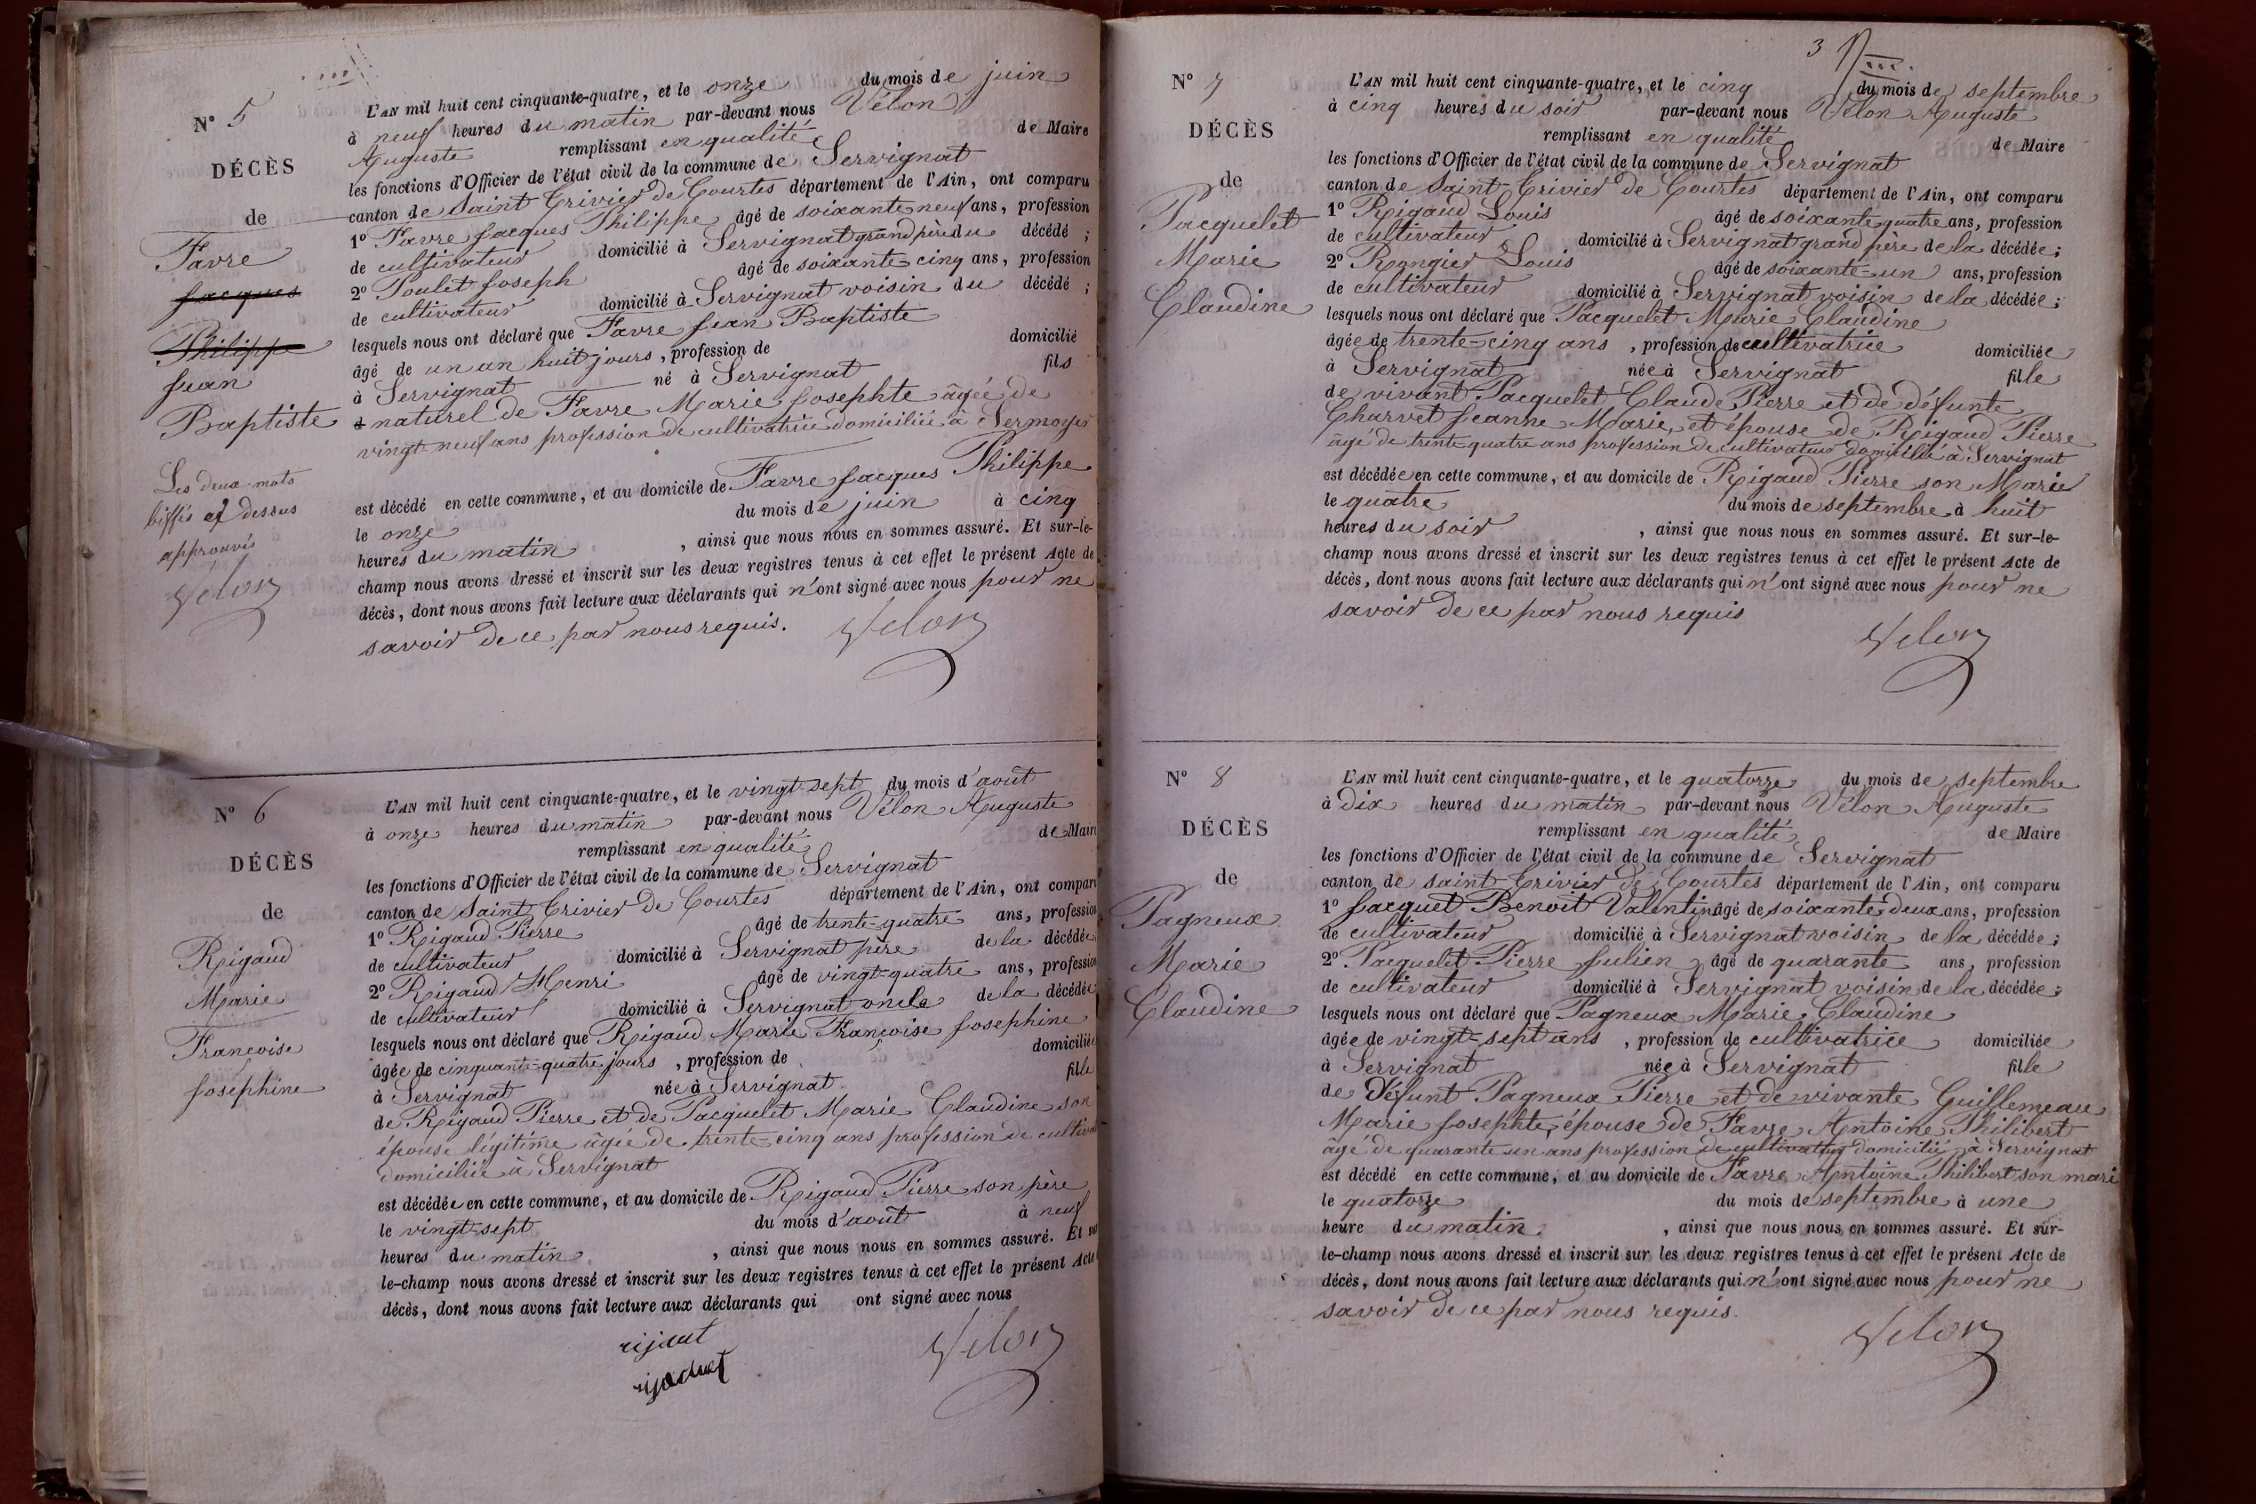 N° 5
DÉCÈS
de
Favre
Jacques
Philippe
Jean
Baptiste
Les deux mots
biffés ci dessus
approuvés
Velon
L'AN mil huit cent cinquante-quatre, et le onze du mois de juin
à neuf heures du matin par-devant nous Vélon
Auguste remplissant en qualité de Maire
les fonctions d'Officier de l'état civil de la commune de Servignat
canton de Saint Trivier de Courtes département de l'Ain, ont comparu
1° Favre Jacques Philippe âgé de soixante neuf ans, profession
de cultivateur domicilié à Servignat grand père du décédé ;
2° Poulet Joseph âgé de soixante-cinq ans, profession
de cultivateur domicilié à Servignat voisin du décédé ;
lesquels nous ont déclaré que Favre Jean Baptiste
âgé de un an huit jours, profession de domicilié
à Servignat né à Servignat fils
naturel de Favre Marie Josephte âgée de
vingt-neuf ans profession de cultivatrice domiciliée à Sermoyer
est décédé en cette commune, et au domicile de Favre Jacques Philippe
le onze du mois de juin à cinq
heures du matin, ainsi que nous nous en sommes assuré. Et sur-le-
champ nous avons dressé et inscrit sur les deux registres tenus à cet effet le présent Acte de
décès, dont nous avons fait lecture aux déclarants qui n'ont signé avec nous pour ne
savoir de ce par nous requis.
Velon
N° 6
DÉCÈS
de
Rigaud
Marie
Françoise
Josephine
L'AN mil huit cent cinquante-quatre, et le vingt-sept du mois d'août
à onze heures du matin par-devant nous Vélon Auguste
remplissant en qualité de Maire
les fonctions d'Officier de l'état civil de la commune de Servignat
canton de Saint Trivier de Courtes département de l'Ain, ont comparu
1° Rigaud Pierre âgé de trente-quatre ans, profession
de cultivateur domicilié à Servignat père de la décédée
2° Rigaud Henri âgé de vingt-quatre ans, profession
de cultivateur domicilié à Servignat oncle de la décédée
lesquels nous ont déclaré que Rigaud Marie Françoise Josephine
âgée de cinquante-quatre jours, profession de domiciliée
à Servignat née à Servignat fille
de Rigaud Pierre et de Pacquelet Marie Claudine son
épouse légitime âgée de trente-cinq ans profession de
domiciliée à Servignat
est décédée en cette commune, et au domicile de Rigaud Pierre son père
le vingt-sept du mois d'août à neuf
heures du matin, ainsi que nous nous en sommes assuré. Et sur
le-champ nous avons dressé et inscrit sur les deux registres tenus à cet effet le présent Acte
décès, dont nous avons fait lecture aux déclarants qui ont signé avec nous
Velon
3
N° 7
DÉCÈS
de
Pacquelet
Marie
Claudine
L'AN mil huit cent cinquante-quatre, et le cinq du mois de septembre
à cinq heures du soir par-devant nous Vélon Auguste
remplissant en qualité de Maire
les fonctions d'Officier de l'état civil de la commune de Servignat
canton de Saint-Trivier de Courtes département de l'Ain, ont comparu
1° Rigaud Louis âgé de soixante quatre ans, profession
de cultivateur domicilié à Servignat grand père de la décédée ;
2° Rongier Louis âgé de soixante-un ans, profession
de cultivateur domicilié à Servignat voisin de la décédée ;
lesquels nous ont déclaré que Pacquelet Marie Claudine
âgée de trente-cinq ans, profession de cultivatrice domiciliée
à Servignat née à Servignat fille
de vivant Pacquelet Claude Pierre et de défunte
Charvet Jeanne Marie, et épouse de Rigaud Pierre
âgé de trente-quatre ans profession de cultivateur domicilié à Servignat
est décédée en cette commune, et au domicile de Rigaud Pierre son Marie
le quatre du mois de septembre à huit
heures du soir, ainsi que nous nous en sommes assuré. Et sur-le-
champ nous avons dressé et inscrit sur les deux registres tenus à cet effet le présent Acte de
décès, dont nous avons fait lecture aux déclarants qui n'ont signé avec nous pour ne
savoir de ce par nous requis
Velon
N° 8
DÉCÈS
de
Pagneux
Marie
Claudine
L'AN mil huit cent cinquante-quatre, et le quatorze du mois de septembre
à dix heures du matin par-devant nous Vélon Auguste
remplissant en qualité de Maire
les fonctions d'Officier de l'état civil de la commune de Servignat
canton de saint-Trivier de Courtes département de l'Ain, ont comparu
1° Jacquet Benoit Valentin âgé de soixante-deux ans, profession
de cultivateur domicilié à Servignat voisin de la décédée ;
2° Pacquelet Pierre Julien âgé de quarante ans, profession
de cultivateur domicilié à Servignat voisin de la décédée ;
lesquels nous ont déclaré que Pagneux Marie Claudine
âgée de vingt-sept ans, profession de cultivatrice domiciliée
à Servignat née à Servignat fille
de Défunt Pagneux Pierre et de vivante Guillemeau
Marie Josephte, épouse de Favre Antoine Philibert
âgé de quarante un ans profession de cultivateur domicilié à Servignat
est décédé en cette commune, et au domicile de Favre Antoine Philibert son mari
le quatorze du mois de septembre à une
heure du matin, ainsi que nous nous en sommes assuré. Et sur-
le-champ nous avons dressé et inscrit sur les deux registres tenus à cet effet le présent Acte de
décès, dont nous avons fait lecture aux déclarants qui n'ont signé avec nous pour ne
savoir de ce par nous requis.
Velon